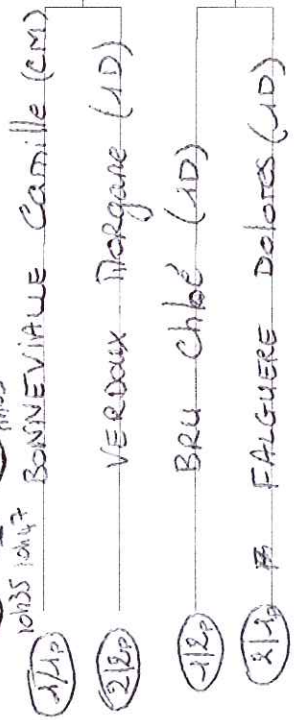 10h35 10h47
1/1p BONNEVIALLE Camille (CM)
2/2p VERDOUX Morgane (1D)
1/2p BRU Chloé (1D)
2/1p FALGUERE Dolores (1D)